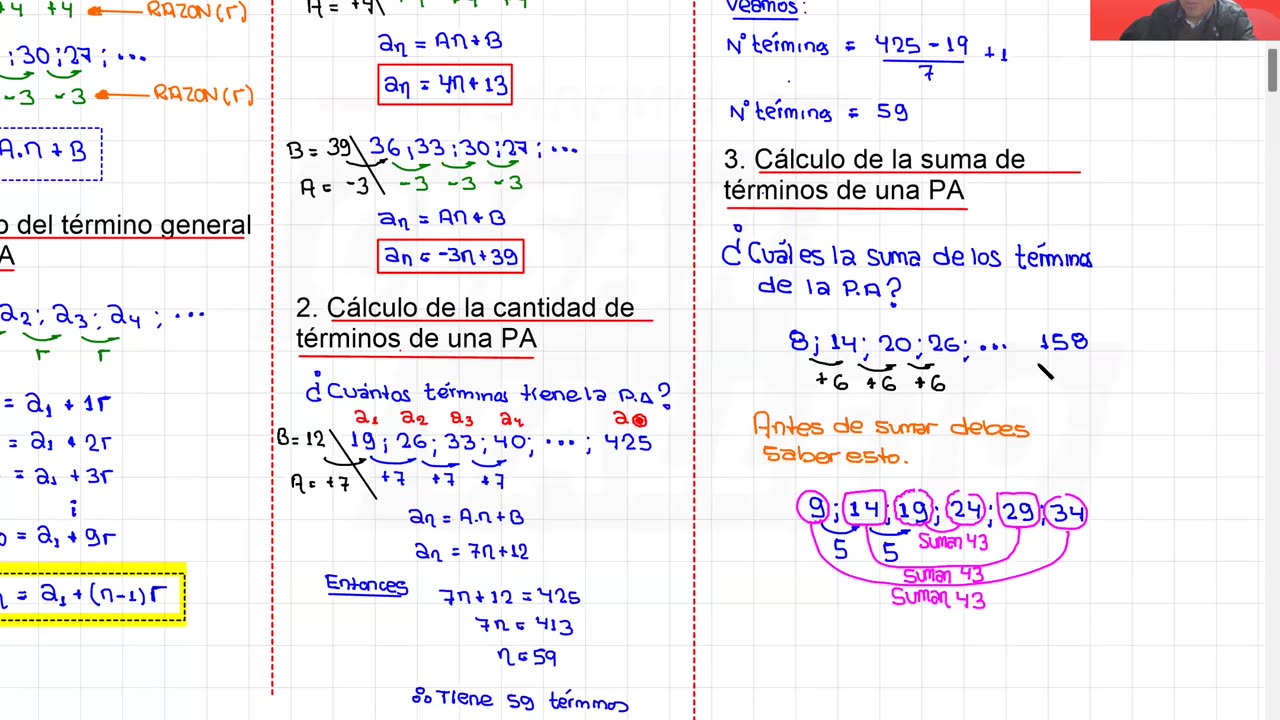 +4 +4 RAZON(r)
;30;27;...
-3 -3 RAZON(r)
A.n+B
o del término general
A
a2; a3; a4; ...
r r
= a1 + 1r
= a1 + 2r
= a1 + 3r
= a1 + 9r
= a1 + (n-1)r
A = +4
an = An+B
an = 4n+13
B = 39 36;33;30;27;...
A = -3 -3 -3 -3
an = An+B
an = -3n+39
2. Cálculo de la cantidad de
términos de una PA
¿Cuántos términos tiene la P.A?
a1 a2 a3 a4 a
B=12 19; 26; 33; 40; ...; 425
A=+7 +7 +7 +7
an = A.n+B
an = 7n+12
Entonces
7n+12 = 425
7n = 413
n = 59
∴ Tiene 59 términos
Veamos:
N° términos = 425-19 / 7 + 1
N° términos = 59
3. Cálculo de la suma de
términos de una PA
¿Cuál es la suma de los términos
de la P.A?
8; 14; 20; 26; ... 158
+6 +6 +6
Antes de sumar debes
saber esto.
9; 14; 19; 24; 29; 34
5 5 Suman 43
Suman 43
Suman 43